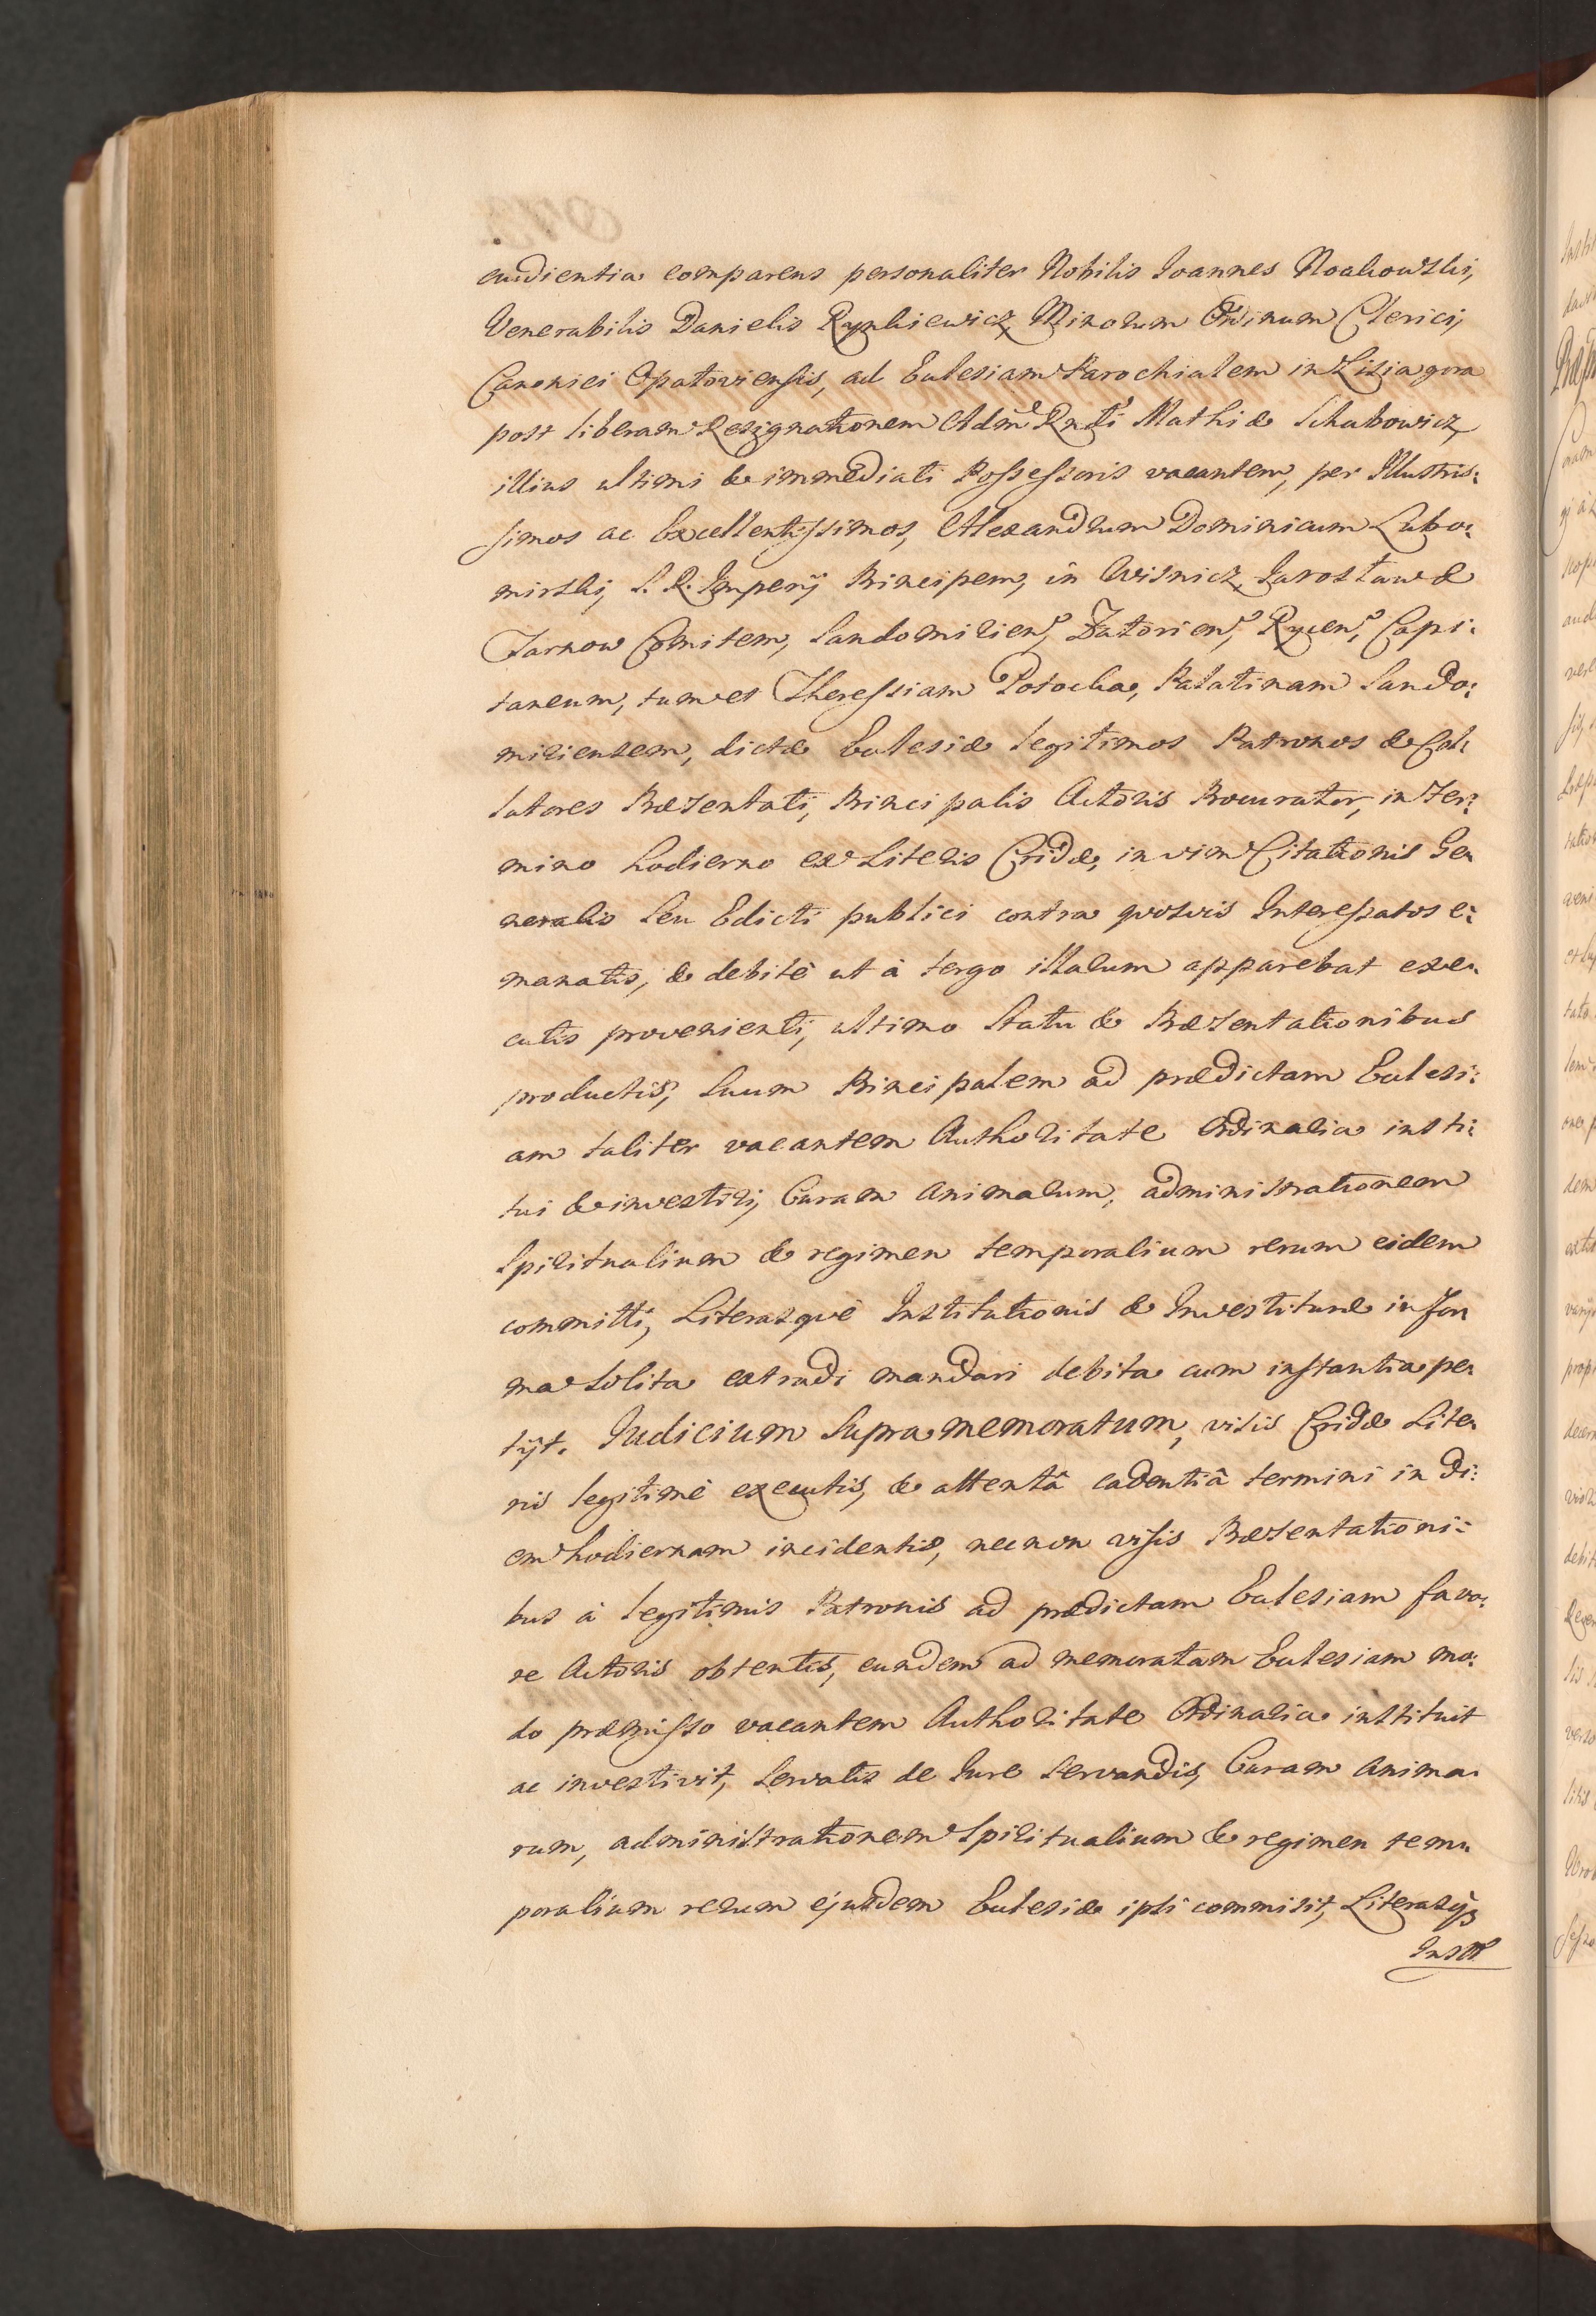 audientia comparens personaliter Nobilis Joannes Noakowski,
Venerabilis Danielis Rynkiewicz, Minorum Ordinum Clerici,
Canonici Opatoviensis, ad Eclesiam Parochialem in Lisiagora
post liberam Resignationem Adm Rndi Mathiæ Schabowicz
illius ultimi & immediati Possessoris vacantem, per Illustris:
simos ac Excellentissimos, Alexandrum Dominicum Lubo:
mirski, S. R. Imperij Principem, in Wisnicz Jarosław &
Tarnow Comitem, Sandomirien, Zatorien, Rycen, Capi:
taneum, tum et Theressiam Potocka, Palatinam Sando:
miriensem, dictæ Eclesiæ legitimos Patronos & Col:
latores Præsentati, Principalis Actoris Procurator, in Ter:
mino hodierno ex Literis Cridæ, in vim Citationis Ge:
neralis seu Edicti publici contra quosvis Interessatos e:
manatis, & debitè ut à tergo illarum apparebat exe:
cutis provenienti, ultimo Statu & Præsentationibus
productis, suum Principalem ad prædictam Eclesi:
am taliter vacantem Authoritate Ordinaria insti:
tui & investiri, Curam animarum, administrationem
Spiritualium & regimen temporalium rerum eidem
committi, Literasquè Institutionis & Investituræ in for
ma solita extradi mandari debita cum instantia pe:
tijt. Judicium supra memoratum, visis Cridæ Lite:
ris legitimè executis, & attentâ cadentiâ termini in di:
em hodiernam incidentis, necnon visis Præsentationi:
bus à legitimis Patronis ad prædictam Eclesiam favo:
re Actoris obtentis, eundem ad memoratam Eclesiam mo:
do præmisso vacantem Authoritate Ordinaria instituit
ac investivit, servatis de Jure servandis, Curam anima:
rum, administrationem Spiritualium & regimen tem:
poralium rerum ejusdem Eclesiæ ipsi commisit, Literasq3
Instit